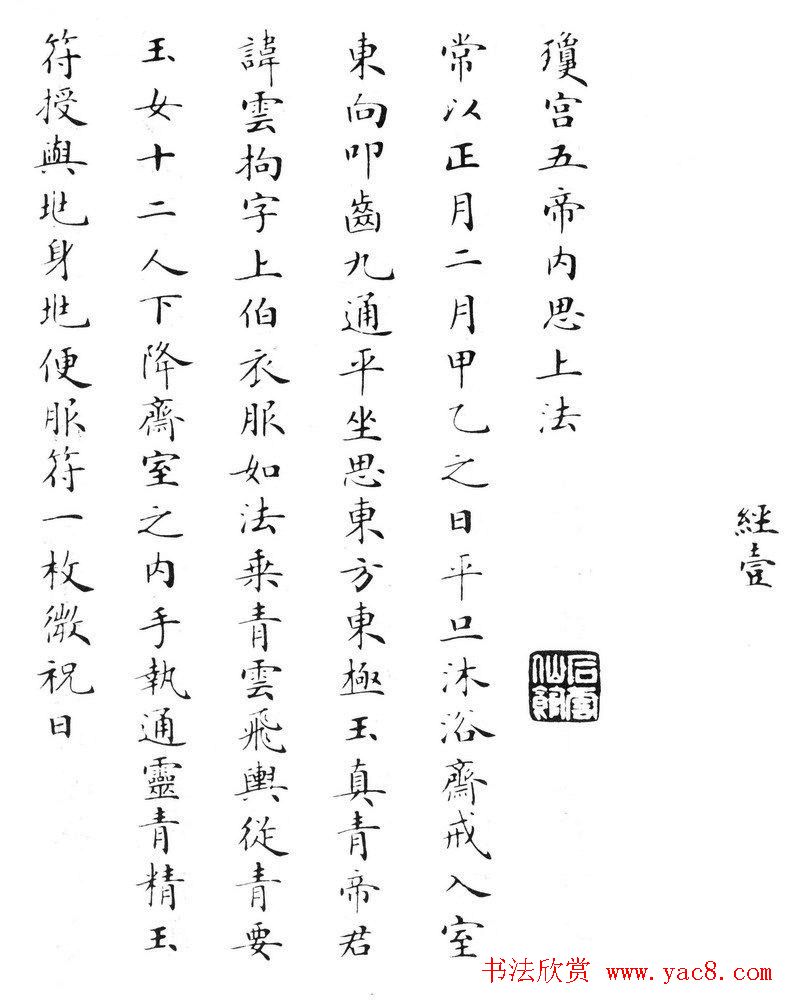 經壹
瓊宮五帝內思上法
常以正月二月甲乙之日平旦沐浴齋戒入室
東向叩齒九通平坐思東方東極玉真青帝君
諱雲拘字上伯衣服如法乘青雲飛輿從青要
玉女十二人下降齋室之內手執通靈青精玉
符授與兆身兆便服符一枚微祝曰
书法欣赏 www.yac8.com